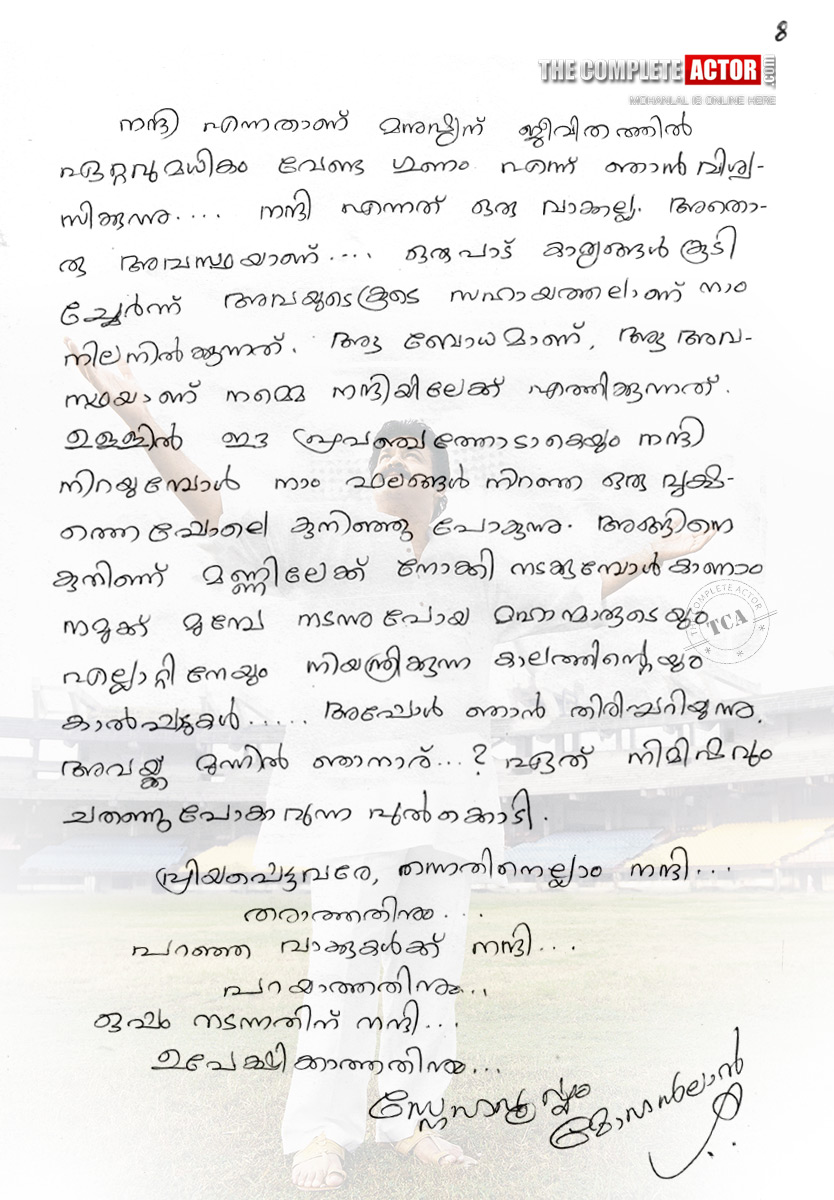 8
THE COMPLETE ACTOR .com
MOHANLAL IS ONLINE HERE
നന്ദി എന്നതാണ് മനുഷ്യന് ജീവിതത്തിൽ
ഏറ്റവുമധികം വേണ്ട ഗുണം എന്ന് ഞാൻ വിശ്വ-
സിക്കുന്നു.... നന്ദി എന്നത് ഒരു വാക്കല്ല. അതൊ-
രു അവസ്ഥയാണ്.... ഒരുപാട് കാര്യങ്ങൾ കൂടി
ച്ചേർന്ന് അവയുടെകൂടെ സഹായത്തലാണ് നാം
നിലനിൽക്കുന്നത്. ആ ബോധമാണ്, ആ അവ-
സ്ഥയാണ് നമ്മെ നന്ദിയിലേക്ക് എത്തിക്കുന്നത്.
ഉള്ളിൽ ഈ പ്രപഞ്ചത്തോടാകെയും നന്ദി
നിറയുമ്പോൾ നാം ഫലങ്ങൾ നിറഞ്ഞ ഒരു വൃക്ഷ-
ത്തെപ്പോലെ കുനിഞ്ഞു പോകുന്നു. അങ്ങിനെ
കുനിഞ്ഞ് മണ്ണിലേക്ക് നോക്കി നടക്കുമ്പോൾ കാണാം
നമുക്ക് മുമ്പേ നടന്നുപോയ മഹാന്മാരുടെയും
എല്ലാറ്റിനേയും നിയന്ത്രിക്കുന്ന കാലത്തിന്റെയും
കാൽപ്പാടുകൾ..... അപ്പോൾ ഞാൻ തിരിച്ചറിയുന്നു.
അവയ്ക്കു മുന്നിൽ ഞാനാര്...? ഏത് നിമിഷവും
ചതഞ്ഞുപോകാവുന്ന പുൽക്കൊടി.
പ്രിയപ്പെട്ടവരേ, തന്നതിനെല്ലാം നന്ദി...
തരാത്തതിനും...
പറഞ്ഞ വാക്കുകൾക്ക് നന്ദി...
പറയാത്തതിനും...
ഒപ്പം നടന്നതിന് നന്ദി...
ഉപേക്ഷിക്കാത്തതിനും...
സ്നേഹപൂർവ്വം
മോഹൻലാൽ
THE COMPLETE ACTOR
TCA